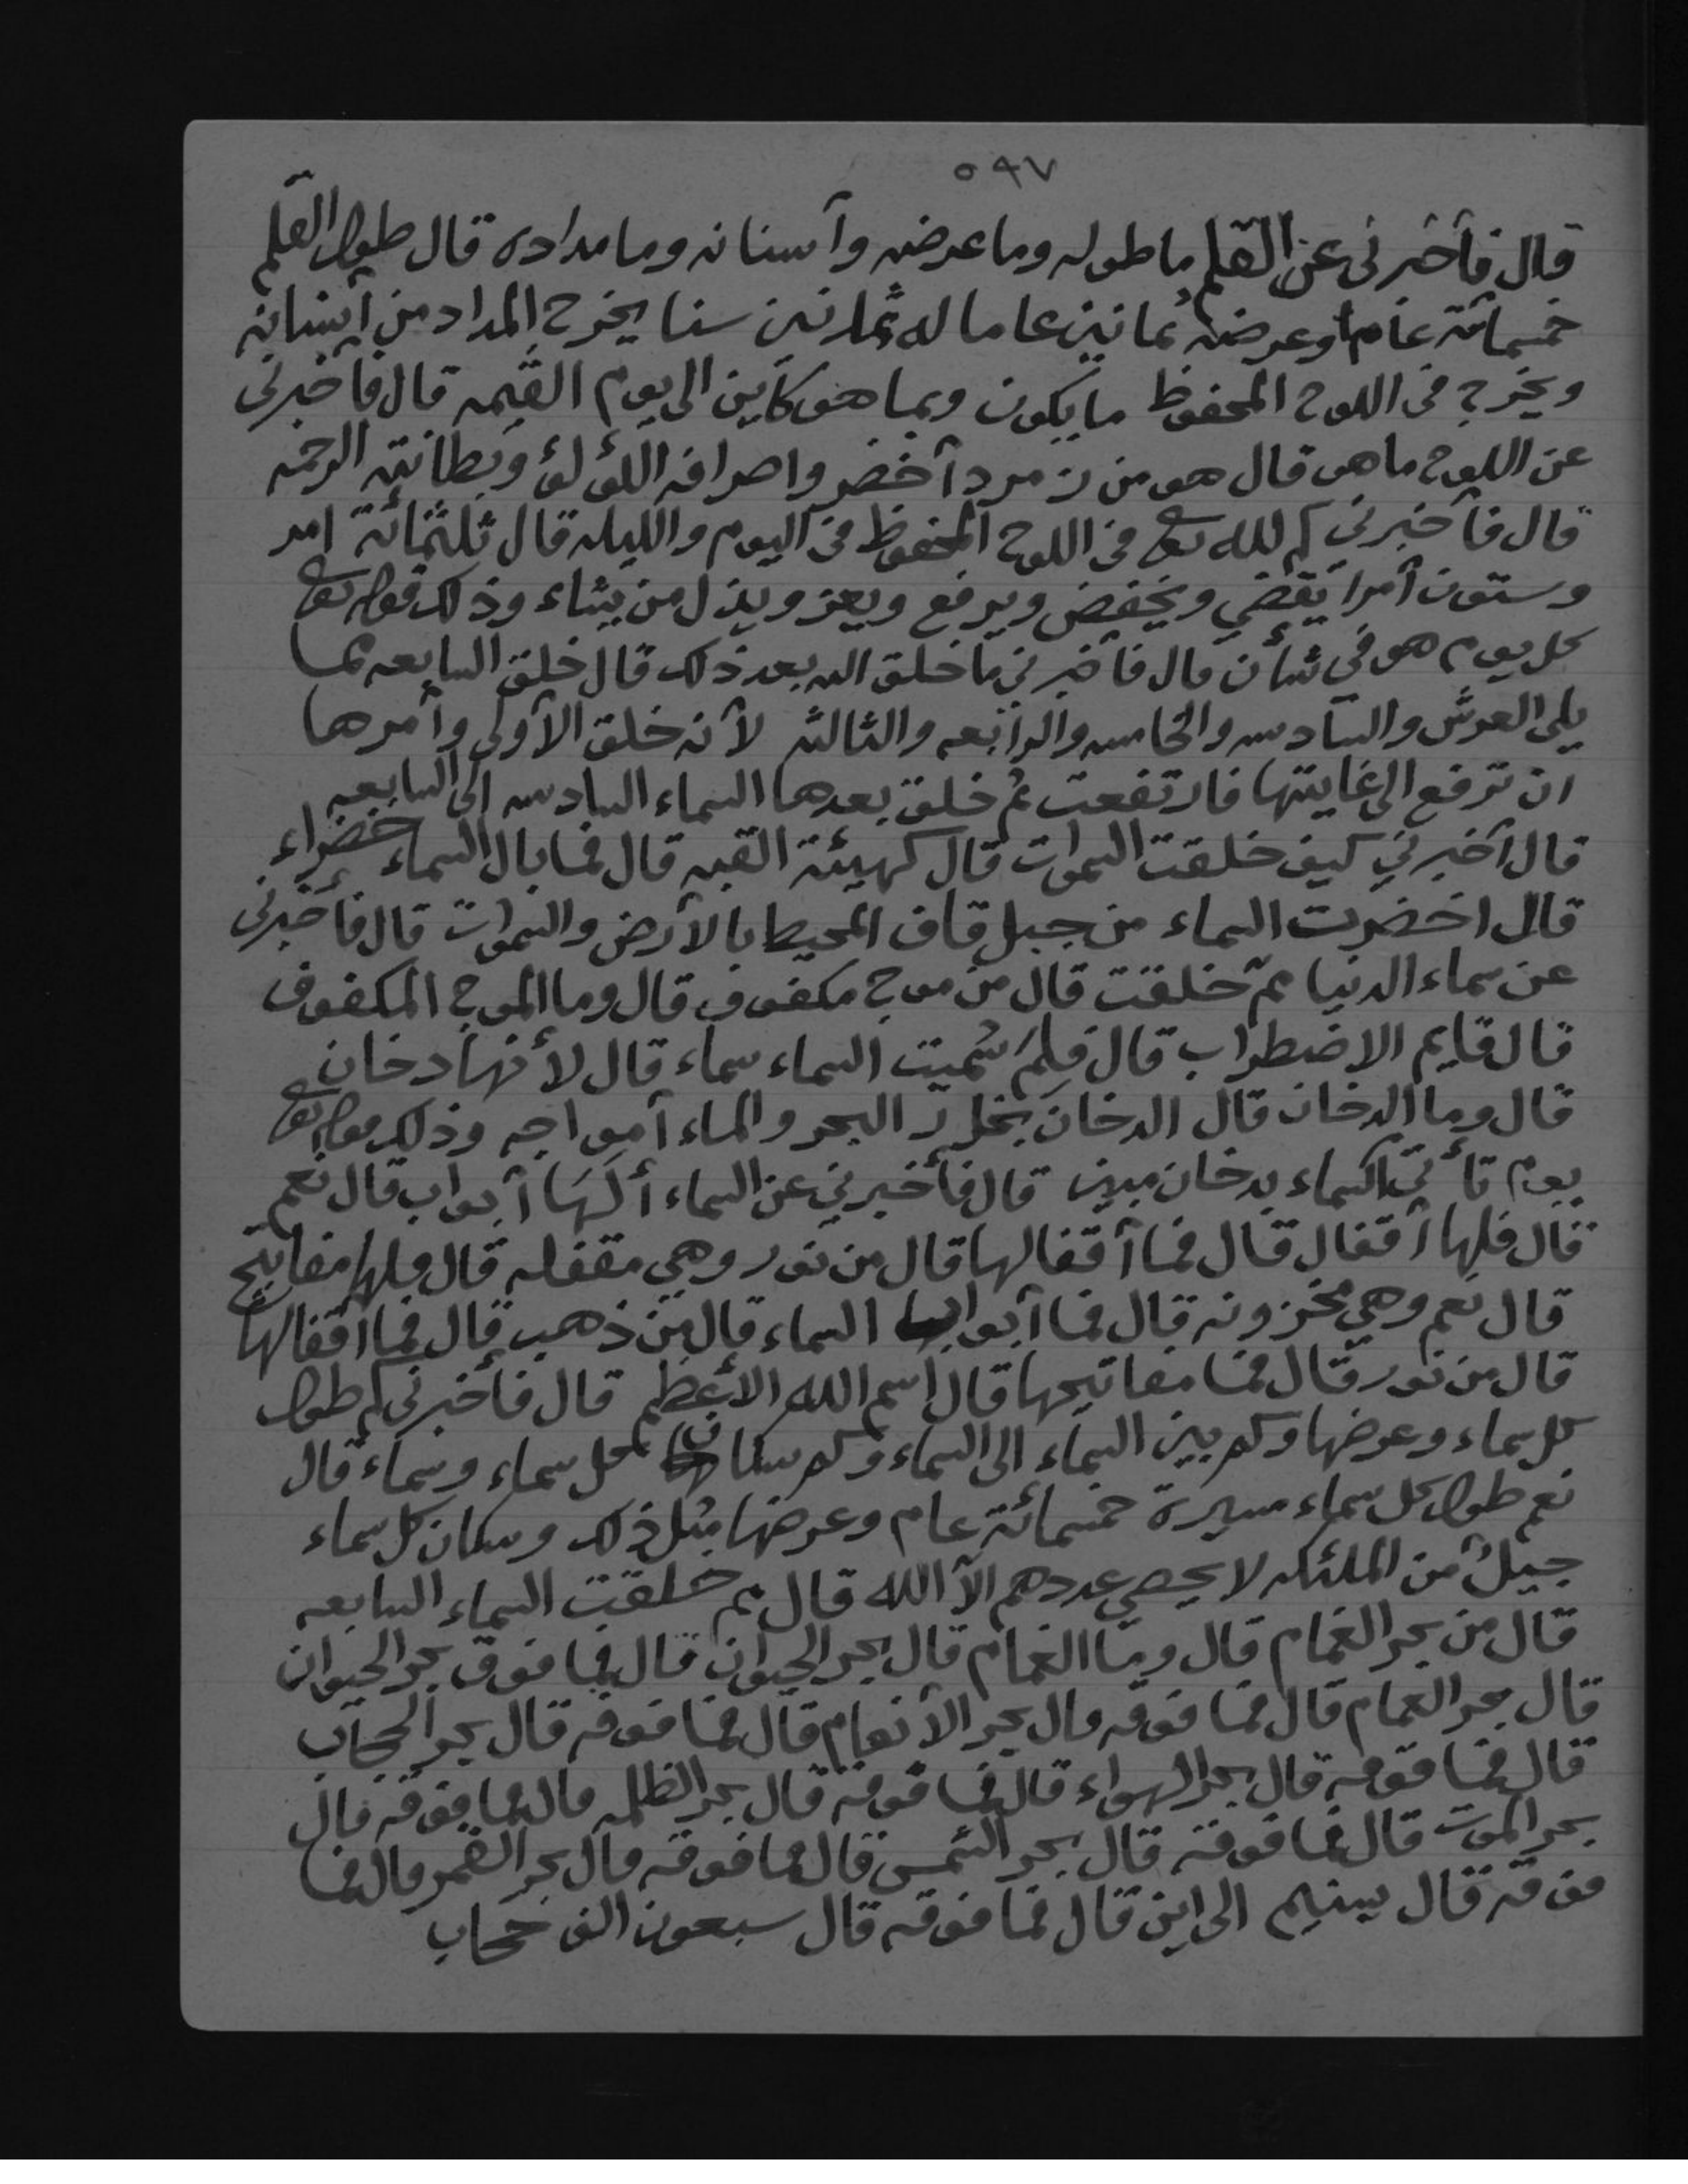 ٥٩٧
قال فأخبرنى عن القلم ما طوله وما عرضه وأسنانه وما مداده قال طول القلم
خمسمائة عام وعرضه ثمانين عاما له ثمانين سنا يخرج المداد من أسنانه
ويخرج فى اللوح المحفوظ ما يكون وبما هو كاين الى يوم القيمه قال فأخبرنى
عن اللوح ما هو قال هو من زمرد أخضر واصرافه اللؤلؤ وبطانته الرحمه
قال فأخبرني كم لله تع في اللوح المحفوظ في اليوم والليله قال ثلثمائة امر
وستون أمرا يقضي ويخفض ويرفع ويعز ويذل من يشاء وذلك قوله تع
كل يوم هو في شأن قال فأخبرني ما خلق الله بعد ذلك قال خلق السابعه مما
يلي العرش والسادسه والخامسه والرابعه والثالثه لأنه خلق الأولى وأمرها
ان ترفع الى غايتها فارتفعت ثم خلق بعدها السماء السادسه الى السابعه
قال أخبرني كيف خلقت السموات قال كهيئة القبه قال فما بال السماء خضراء
قال اخضرت السماء من جبل قاف المحيط بالأرض والسموات قال فأخبرنى
عن سماء الدنيا مم خلقت قال من موج مكفوف قال وما الموج المكفوف
قال قايم الاضطراب قال فلم سُميت السماء سماء قال لأنها دخان
قال وما الدخان قال الدخان بخار البحر والماء أمواجه وذلك قوله تع
يوم تأتي السماء بدخان مبين قال فأخبرني عن السماء ألها أبواب قال نعم
قال فلها أقفال قال فما أقفالها قال من نور وهي مقفله قال فلها مفاتيح
قال نعم وهي مخزونه قال فما أبواب السماء قال من ذهب قال فما اقفالها
قال من نور قال فما مفاتيحها قال إسم الله الأعظم قال فأخبرنى كم طول
كل سماء وعرضها وكم بين السماء الى السماء وكم سكان كل سماء وسماء قال
نعم طول كل سماء مسيرة خمسمائة عام وعرضها مثل ذلك وسكان كل سماء
جيلٌ من الملئكه لا يحصي عددهم الآ الله قال مم خلقت السماء السابعه
قال من بحر الغمام قال وما الغمام قال بحر الحيوان قال فما فوق بحر الحيوان
قال بحر الغمام قال فما فوقه قال بحر الأنعام قال فما فوقه قال بحر الحجاب
قال فما فوقه قال بحر الهواء قال فما فوقه قال بحر الظلمه قال فما فوقه قال
بحر الموت قال فما فوقه قال بحر الشمس قال فما فوقه قال بحر القمر قال فما
فوقه قال الى اين قال فما فوقه قال سبعون الف حجاب